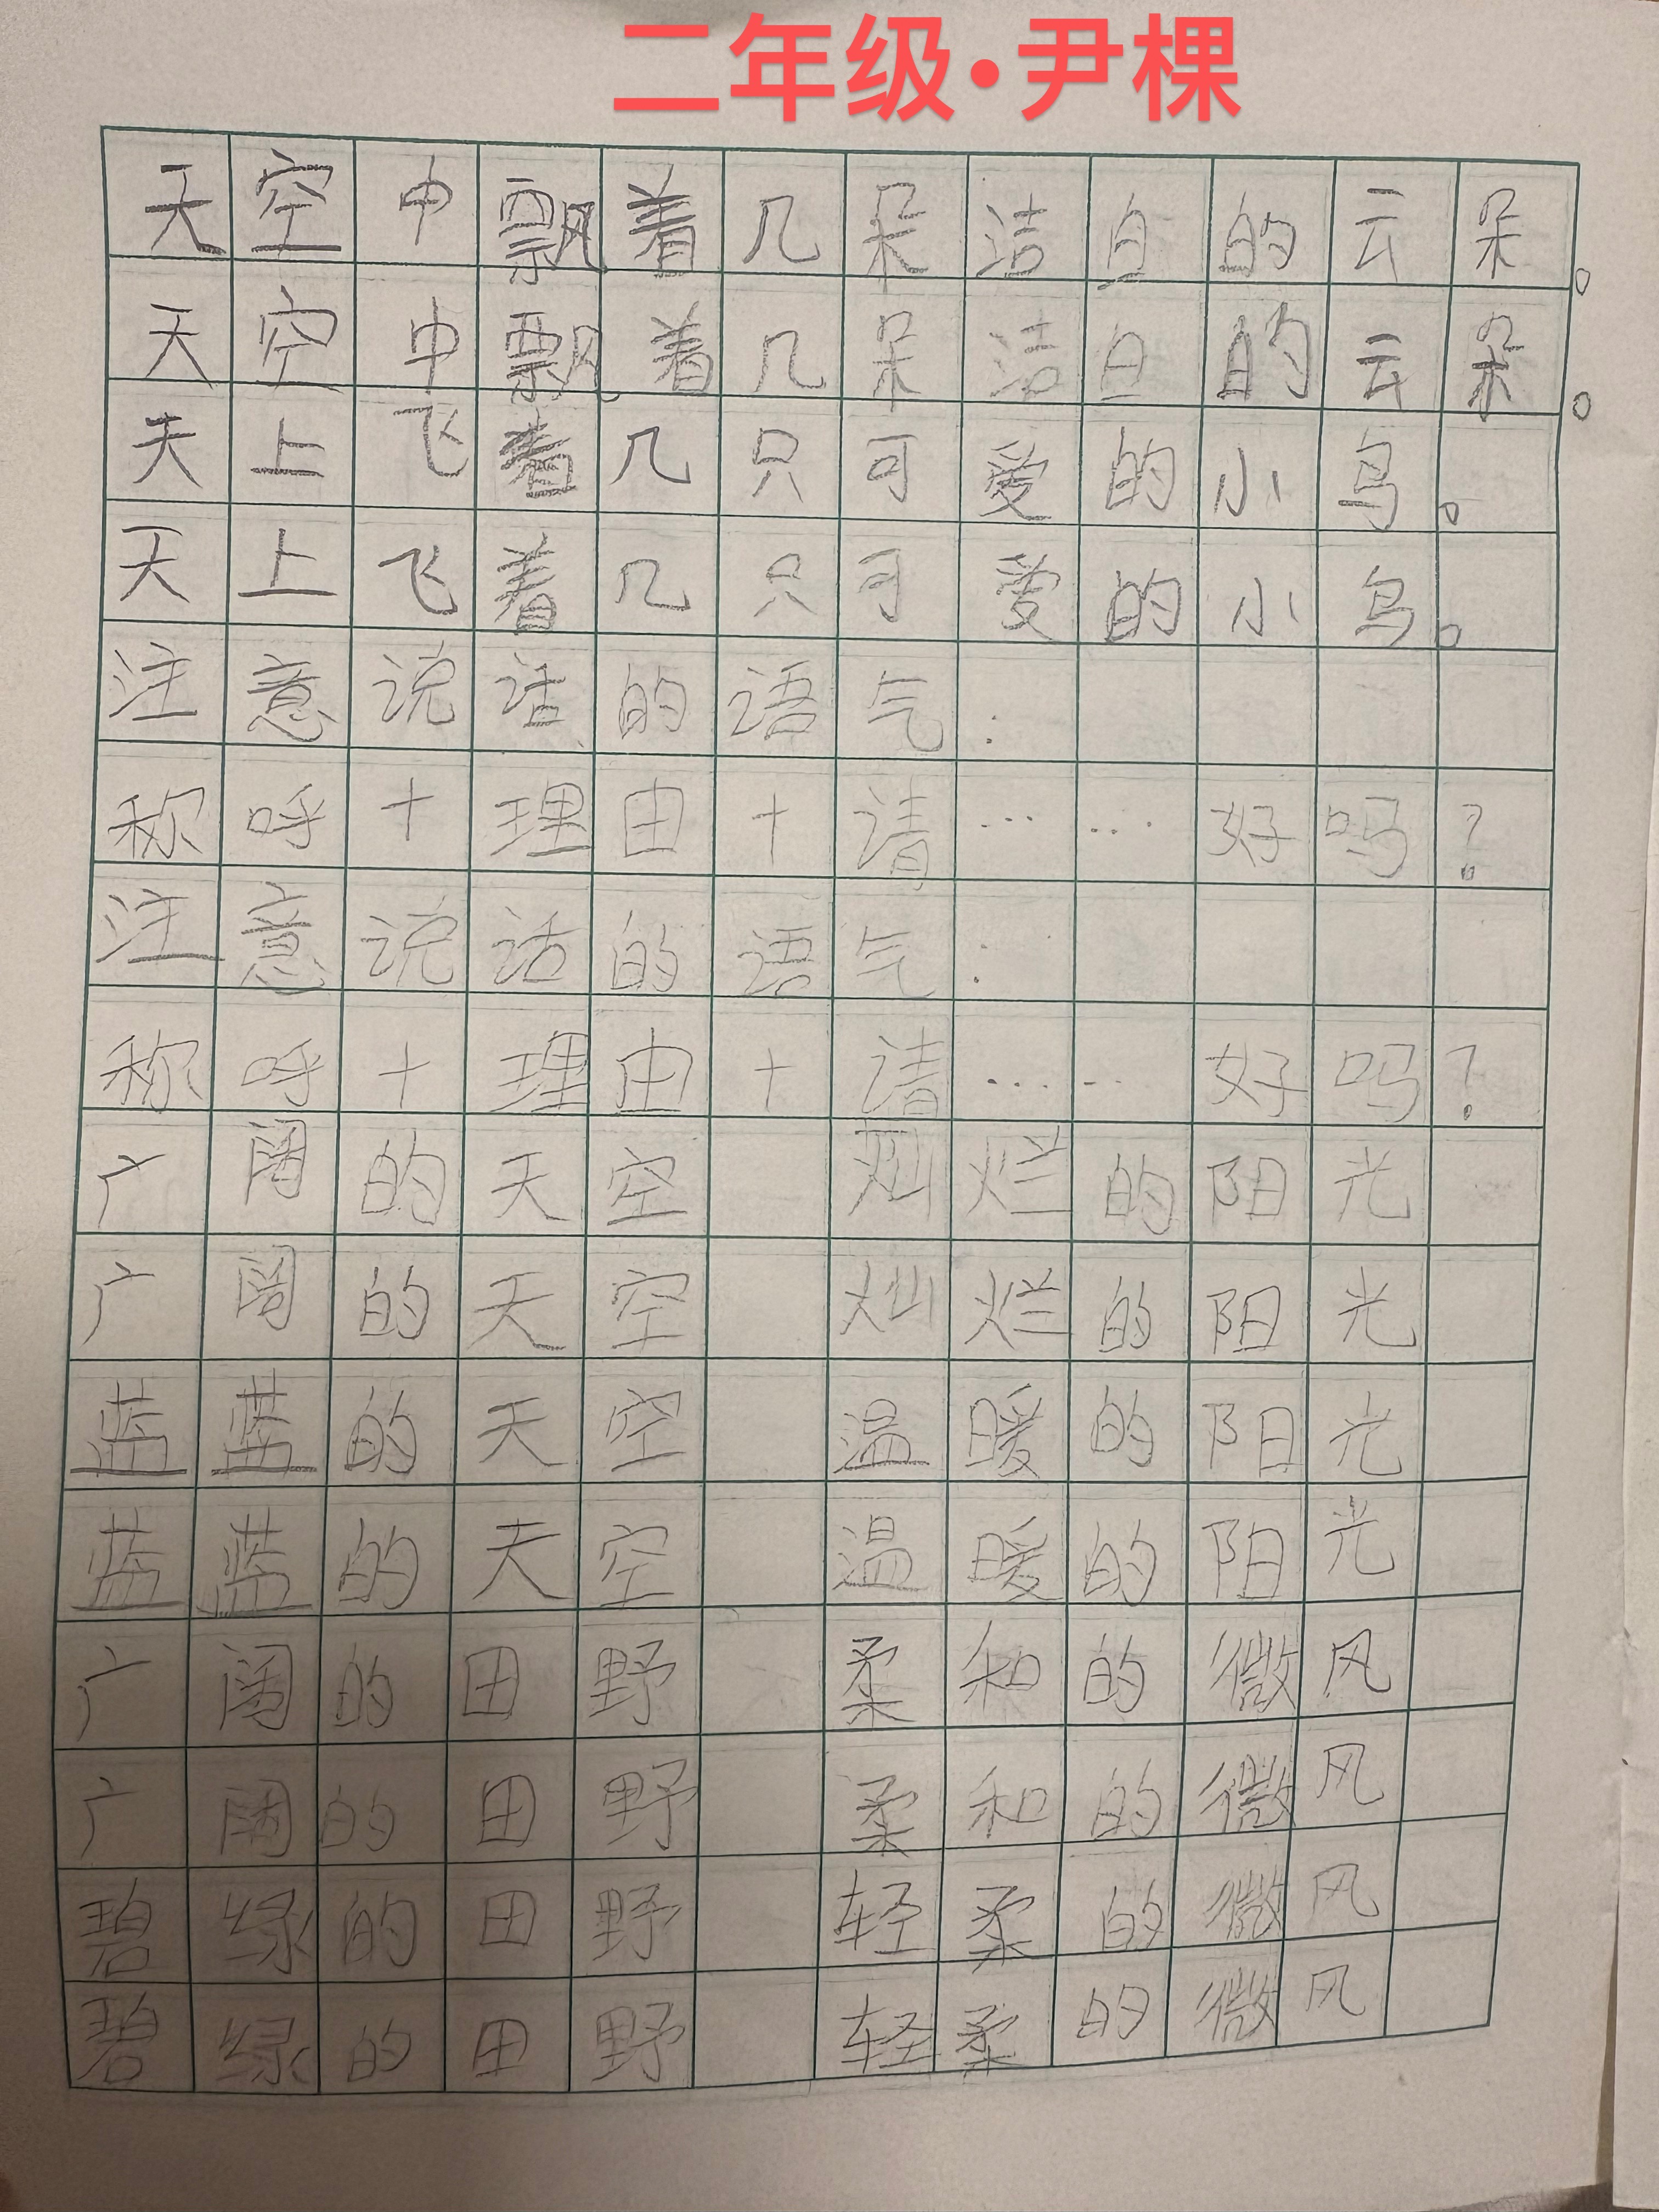 二年级·尹棵
天空中飘着几朵洁白的云朵。
天空中飘着几朵洁白的云朵。
天上飞着几只可爱的小鸟。
天上飞着几只可爱的小鸟。
注意说话的语气：
称呼+理由+请……好吗？
注意说话的语气：
称呼+理由+请……好吗？
广阔的天空 灿烂的阳光
广阔的天空 灿烂的阳光
蓝蓝的天空 温暖的阳光
蓝蓝的天空 温暖的阳光
广阔的田野 柔和的微风
广阔的田野 柔和的微风
碧绿的田野 轻柔的微风
碧绿的田野 轻柔的微风